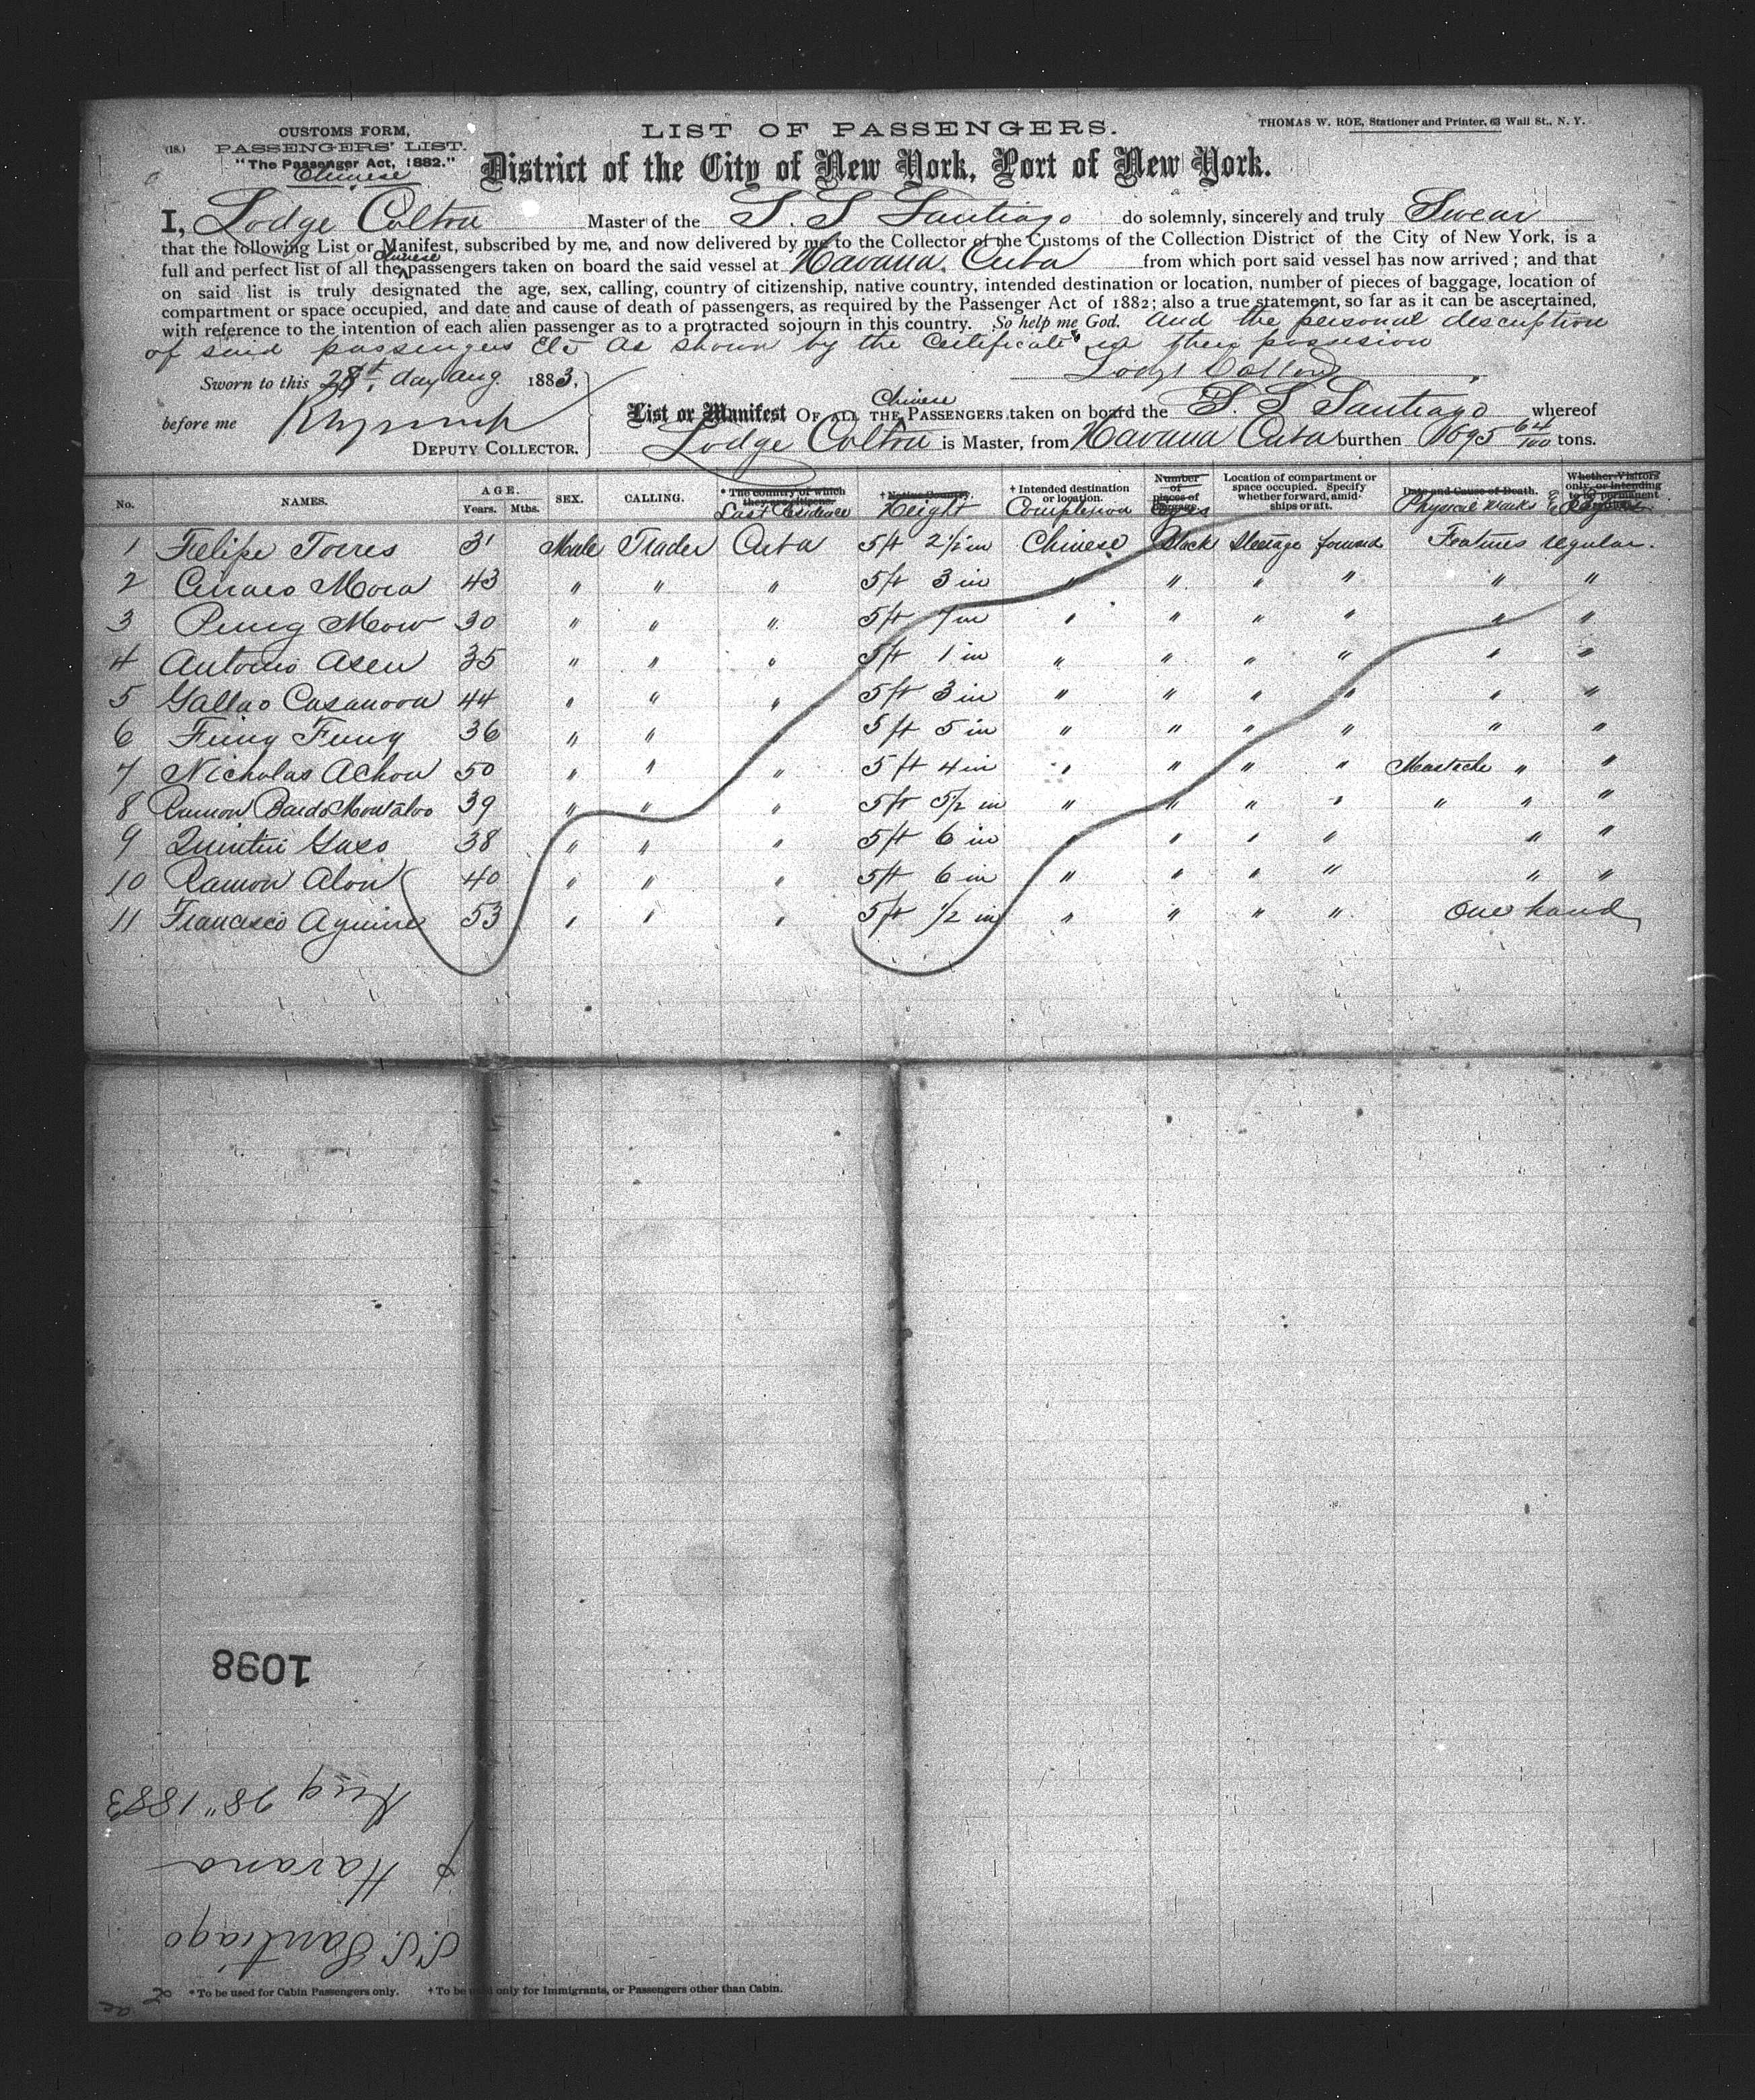 (18.)
CUSTOMS FORM,
PASSENGERS' LIST.
"The Passenger Act, 1882."
Chinese
LIST OF PASSENGERS.
THOMAS W. ROE, Stationer and Printer, 63 Wall St., N. Y.
District of the City of New York, Port of New York.
I, Lodge Colton Master of the S. S Santiago do solemnly, sincerely and truly Swear
that the following List or Manifest, subscribed by me, and now delivered by me to the Collector of the Customs of the Collection District of the City of New York, is a
full and perfect list of all the Chinese passengers taken on board the said vessel at Havana. Cuba from which port said vessel has now arrived; and that
on said list is truly designated the age, sex, calling, country of citizenship, native country, intended destination or location, number of pieces of baggage, location of
compartment or space occupied, and date and cause of death of passengers, as required by the Passenger Act of 1882; also a true statement, so far as it can be ascertained,
with reference to the intention of each alien passenger as to a protracted sojourn in this country. So help me God. And the personal description
of said passengers Etc as shown by the Certificates in their possession
Lodge Colton
Sworn to this 28th day Aug. 1883,
before me
DEPUTY COLLECTOR.
List or Manifest OF ALL THE Chinese PASSENGERS taken on board the S. S Santiago whereof
Lodge Colton is Master, from Havana Cuba burthen 1695 64/100 tons.
No. NAMES. AGE. Years. Mths. SEX. CALLING. * The country of which they are citizens. Last Residence † Native Country. Height † Intended destination or location. Complexion Number of pieces of baggage. Eyes Location of compartment or space occupied. Specify whether forward, amidships or aft. Date and Cause of Death. Physical Marks Whether Visitors only, or intending to be permanent
1 Felipe Torres 31 Male Trader Cuba 5ft 2½in Chinese Black Steerage forward Features regular.
2 Mora 43 " " " 5ft 3in " " " " " "
3 Pung Mow 30 " " " 5ft 7in " " " " " "
4 Antonio Asen 35 " " " 5ft 1in " " " " " "
5 Gallao Casanova 44 " " " 5ft 3in " " " " " "
6 Fung Fung 36 " " " 5ft 5in " " " " " "
7 Nicholas Achon 50 " " " 5ft 4in " " " " Mustache " "
8 Ramon Montalvo 39 " " " 5ft 5½in " " " " " " "
9 Quintin 38 " " " 5ft 6in " " " " " "
10 Ramon Alon 40 " " " 5ft 6in " " " " " "
11 Francisco Aguirre 53 " " " 5ft ½in " " " " One hand
1098
S.S. Santiago
f Havana
Aug 28" 1883
* To be used for Cabin Passengers only. † To be used only for Immigrants, or Passengers other than Cabin.